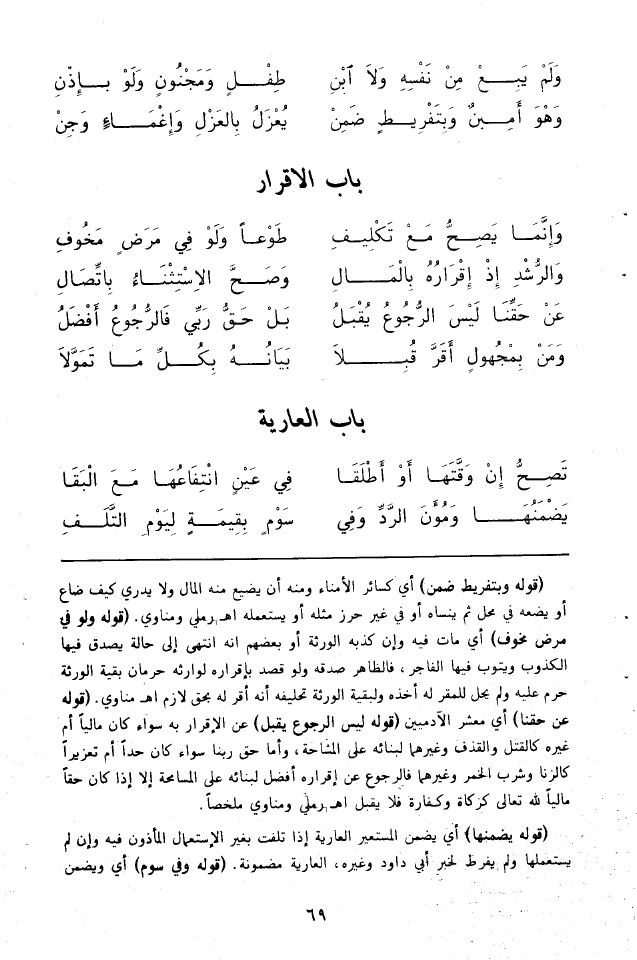 وَلَمْ يَبِعْ مِنْ نَفْسِهِ وَلاَ ٱبْنِ طِفْلٍ وَمَجْنُونٍ وَلَوْ بِإِذْنِ
وَهْوَ أَمِينٌ وَبِتَفْرِيطٍ ضَمِنْ يُعْزَلُ بِالعَزْلِ وَإِغْمَاءٍ وَجِنْ
باب الاقرار
وَإِنَّمَا يَصِحُّ مَعْ تَكْلِيفِ طَوْعاً وَلَوْ فِي مَرَضٍ مَخُوفِ
وَالرُّشْدِ إِذْ إِقْرَارُهُ بِالْمَالِ وَصَحَّ الاِسْتِثْنَاءُ بِاتِّصَالِ
عَنْ حَقِّنَا لَيْسَ الرُّجُوعُ يُقْبَلُ بَلْ حَقُّ رَبِّي فَالرُّجُوعُ أَفْضَلُ
وَمَنْ بِمَجْهُولٍ أَقَرَّ قُبِلاَ بَيَانُهُ بِكُلِّ مَا تَمَوَّلاَ
باب العارية
تَصِحُّ إِنْ وَقَّتَهَا أَوْ أَطْلَقَا فِي عَيْنٍ انْتِفَاعُهَا مَعَ الْبَقَا
يَضْمَنُهَا وَمُؤَنَ الرَّدِّ وَفِي سَوْمٍ بِقِيمَةٍ لِيَوْمِ التَّلَفِ
(قوله وبتفريط ضمن) أي كسائر الأمناء ومنه أن يضيع منه المال ولا يدري كيف ضاع
أو يضعه في محل ثم ينساه أو في غير حرز مثله أو يستعمله اهـ رملي ومناوي. (قوله ولو في
مرض مخوف) أي مات فيه وإن كذبه الورثة أو بعضهم انه انتهى إلى حالة يصدق فيها
الكذوب ويتوب فيها الفاجر، فالظاهر صدقه ولو قصد بإقراره لوارثه حرمان بقية الورثة
حرم عليه ولم يحل للمقر له أخذه ولبقية الورثة تحليفه أنه أقر له بحق لازم اهـ مناوي. (قوله
عن حقنا) أي معشر الآدميين (قوله ليس الرجوع يقبل) عن الإقرار به سواء كان مالياً أم
غيره كالقتل والقذف وغيرهما لبنائه على المشاحة، وأما حق ربنا سواء كان حداً أم تعزيراً
كالزنا وشرب الخمر وغيرهما فالرجوع عن إقراره أفضل لبنائه على المسامحة إلا إذا كان حقاً
مالياً لله تعالى كزكاة وكفارة فلا يقبل اهـ رملي ومناوي ملخصاً.
(قوله يضمنها) أي يضمن المستعير العارية إذا تلفت بغير الإستعمال المأذون فيه وإن لم
يستعملها ولم يفرط لخبر أبي داود وغيره، العارية مضمونة. (قوله وفي سوم) أي ويضمن
٦٩